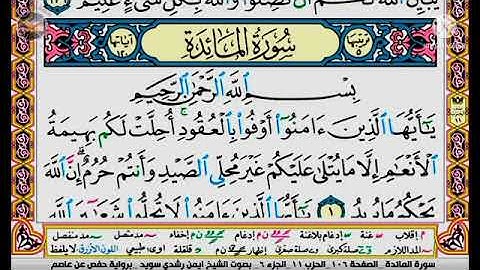 سُورَةُ المَائِدَة
بِسْمِ اللَّهِ الرَّحْمَٰنِ الرَّحِيمِ
يَٰٓأَيُّهَا ٱلَّذِينَ ءَامَنُوٓا۟ أَوْفُوا۟ بِٱلْعُقُودِ أُحِلَّتْ لَكُم بَهِيمَةُ
ٱلْأَنْعَٰمِ إِلَّا مَا يُتْلَىٰ عَلَيْكُمْ غَيْرَ مُحِلِّى ٱلصَّيْدِ وَأَنتُمْ حُرُمٌ إِنَّ ٱللَّهَ
يَحْكُمُ مَا يُرِيدُ ١ يَٰٓأَيُّهَا ٱلَّذِينَ ءَامَنُوا۟ لَا تُحِلُّوا۟ شَعَٰٓئِرَ ٱللَّهِ
م إقلاب غنة إدغام بلاغنة إدغام إخفاء مد متصل مد منفصل
المد اللازم صلة كبرى وصلة صغرى إظهار قلقلة طبيعي اللون الأزرق لا يلفظ
سورة المائدة الصفحة ١٠٦ الحزب ١١ الجزء ٦ بصوت الشيخ ايمن رشدي سويد برواية حفص عن عاصم